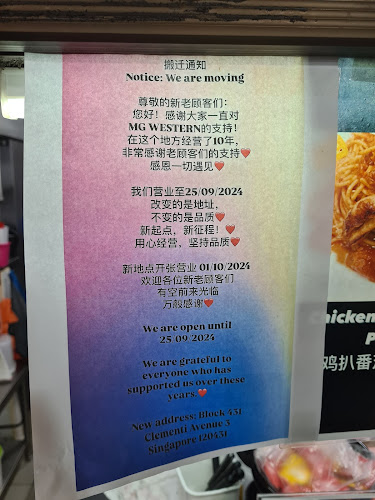 搬迁通知
Notice: We are moving
尊敬的新老顾客们：
您好！感谢大家一直对
MG WESTERN的支持！
在这个地方经营了10年，
非常感谢老顾客们的支持❤️
感恩一切遇见❤️
我们营业至25/09/2024
改变的是地址，
不变的是品质❤️
新起点，新征程！❤️
用心经营，坚持品质❤️
新地点开张营业 01/10/2024
欢迎各位新老顾客们
有空前来光临
万般感谢❤️
We are open until
25/09/2024
We are grateful to
everyone who has
supported us over these
years.❤️
New address: Block 431
Clementi Avenue 3
Singapore 120431
hicken
P
鸡扒番